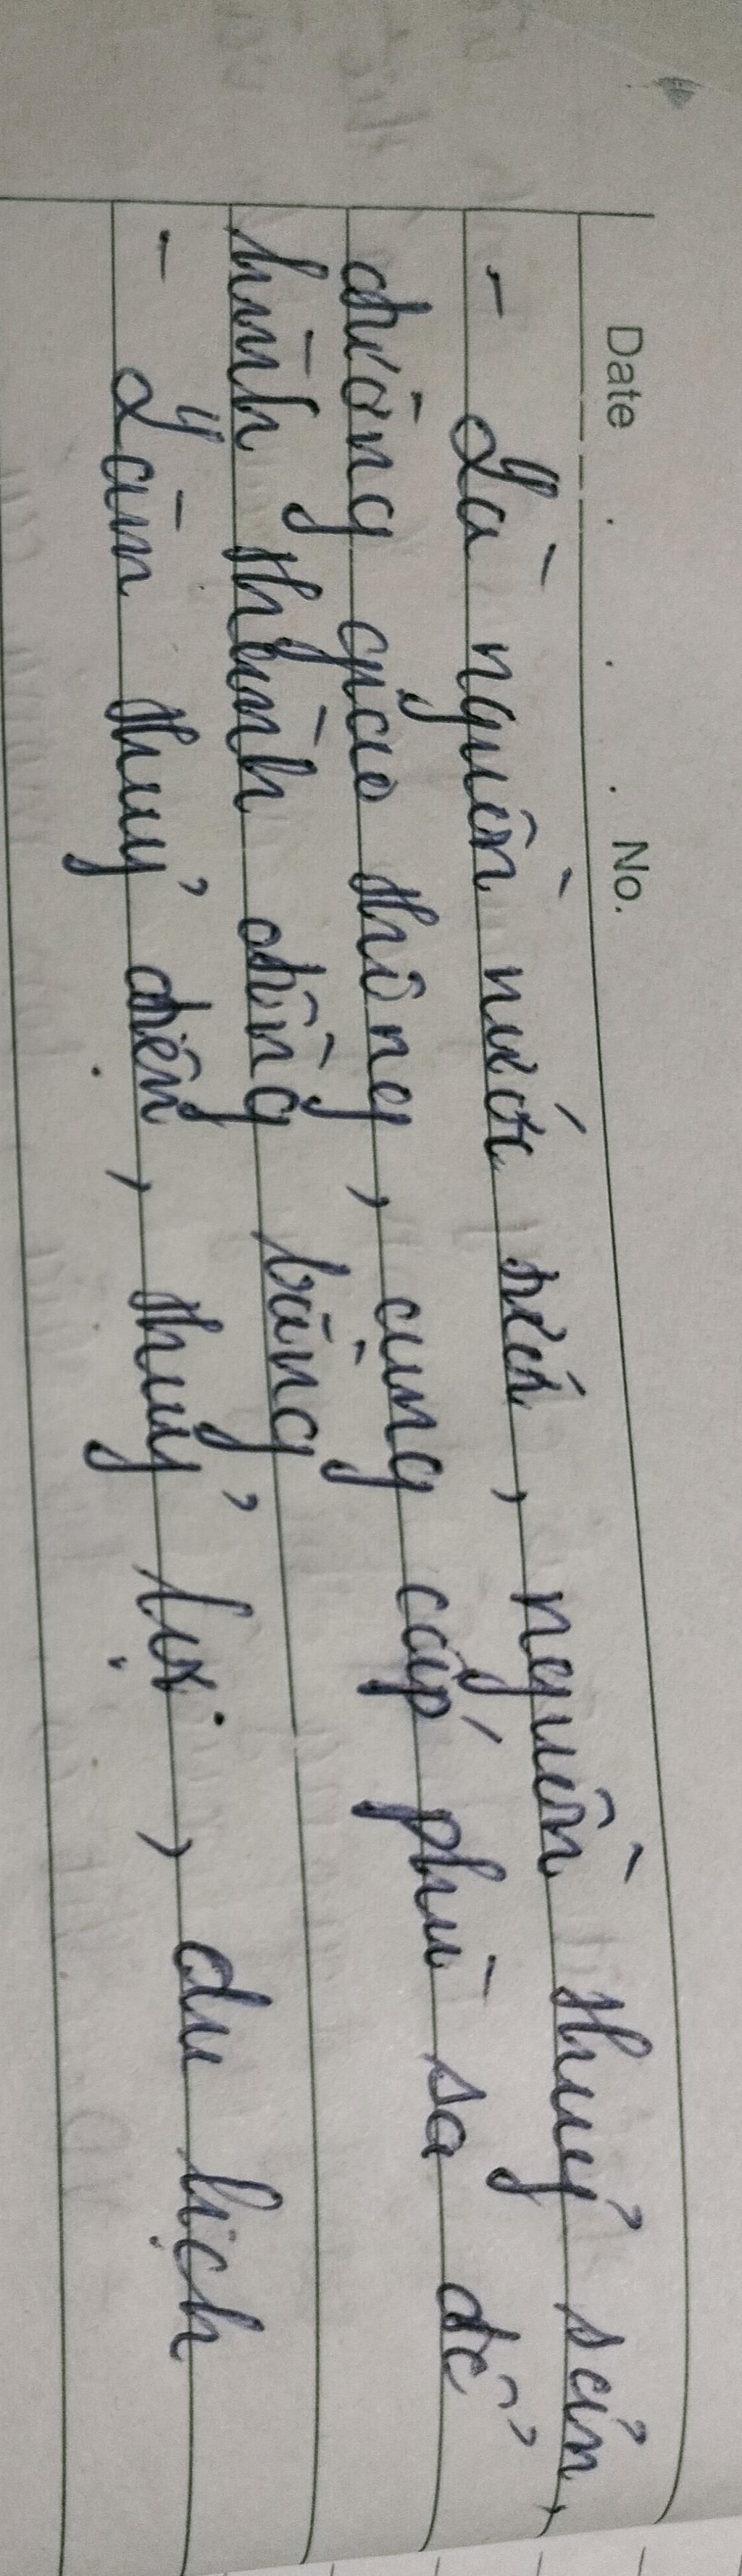 Date . . . No.
- Là nguồn nước tưới, nguồn thuỷ sản,
đường giao thông, cung cấp phù sa để
hình thành đồng bằng
- Làm thuỷ điện, thuỷ lợi, du lịch